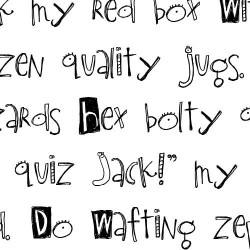 my red box
zen quality jugs.
hex bolty
quiz jack!" my
Do wafting